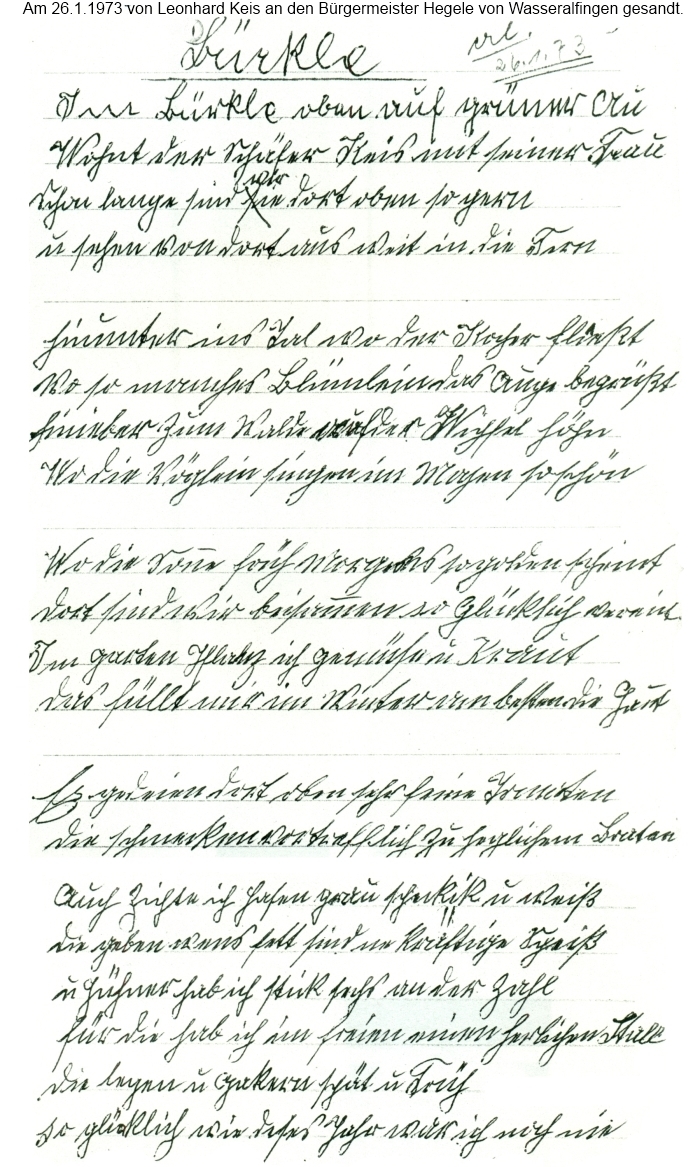 Am 26.1.1973 von Leonhard Keis an den Bürgermeister Hegele von Wasseralfingen gesandt.
Bürkle
erl.
26.1.73
Im Bürkle oben auf grüner Au
Wohnt der Schäfer Keis mit seiner Frau
wir
Schon lange sind sie dort oben so gern
u sehen von dort aus weit in die Fern
hinunter ins Tal wo der Kocher fließt
Wo so manches Blümlein das Auge begrüßt
hinieber zum Walde auf der höhn
Wo die Vöglein singen im Morgen so schön
Wo die Sonne früh Morgens so golden scheint
dort sind wir beisammen so Glücklich vereint.
Im garten Pflanz ich gemüse u Kraut
das füllt mir im Winter am besten die Haut
Es gedeien dort oben sehr feine Tomaten
die schmecken vortrefflich zu jeglichem Braten
Auch Zichte ich Hasen grau scheckik u weiß
die geben wens fett sind ne kräftige Speiß
u Hühner hab ich stük sechs an der Zahl
für die hab ich im freien einen herlichen Stall
die legen u gakern spät u Früh
so glücklich wie deses Jahr war ich noch nie